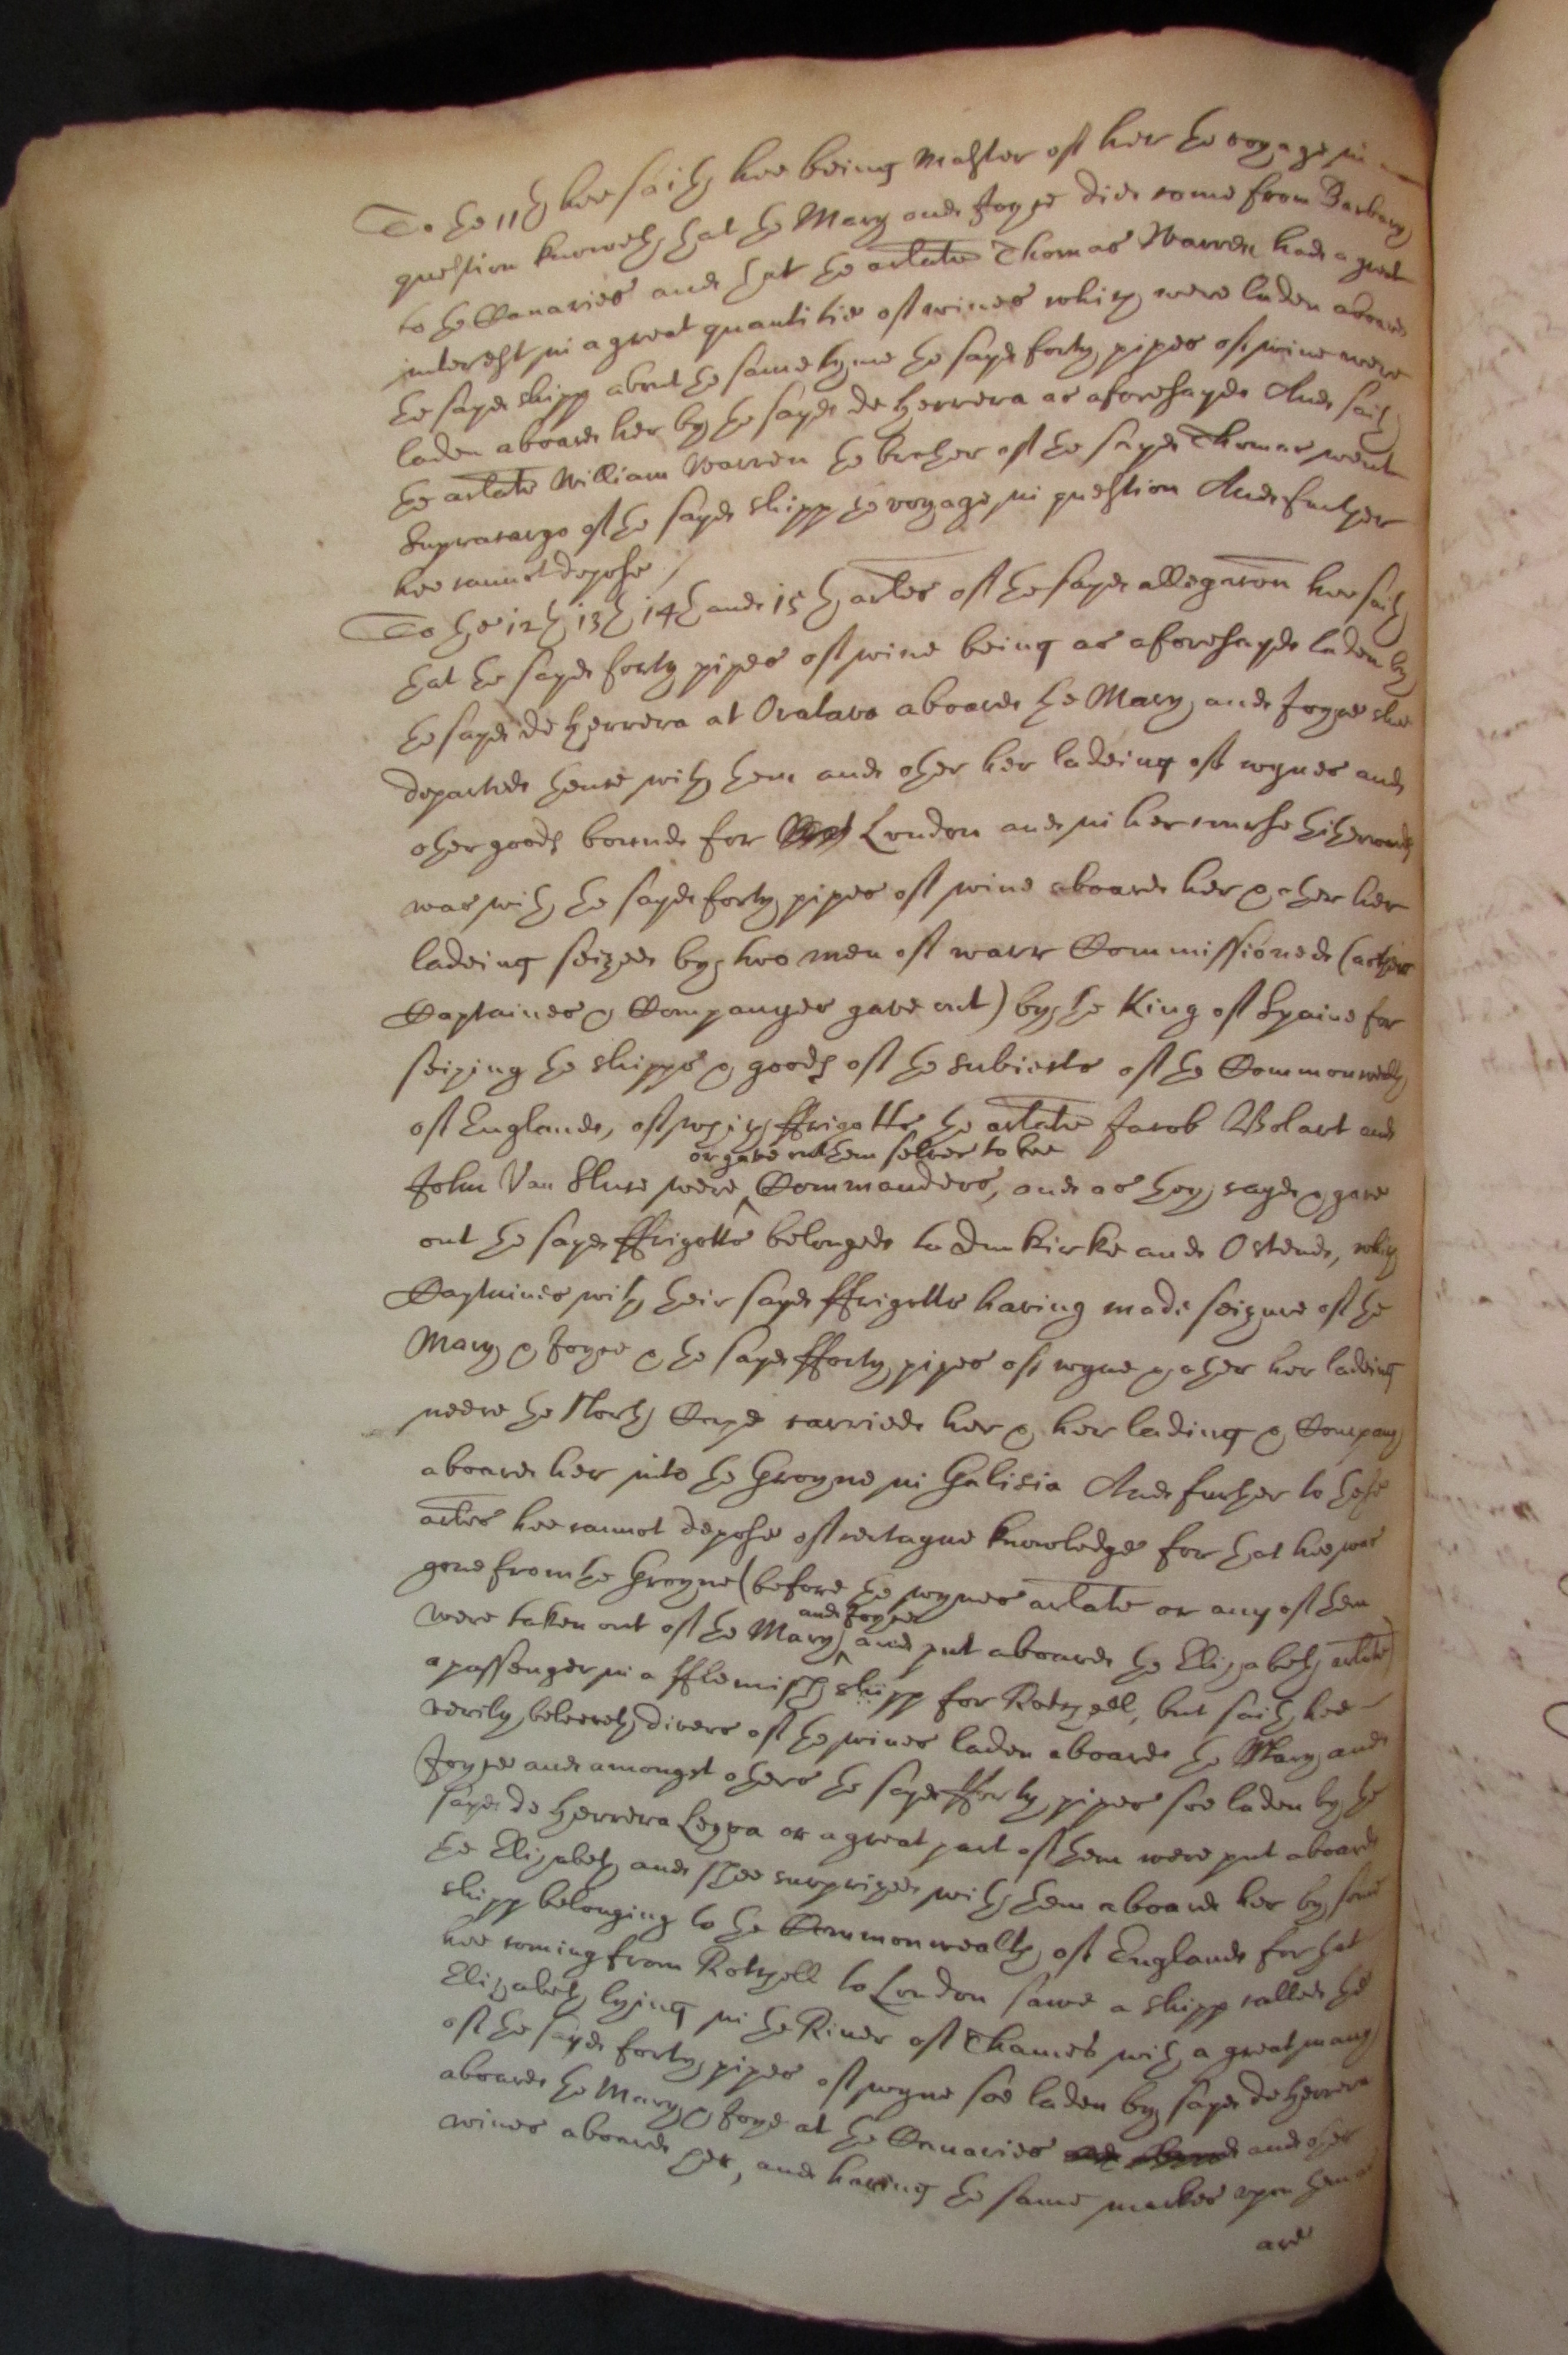 To the 11th hee saith hee being Master of her the voyage in
question knoweth that the Mary and Joyce did come from Barbary
to the Canaries and that the arlate Thomas Warren had a great
interest in a great quantitie of wines which were laden aboard
the sayd shipp about the same tyme the sayd forty pipes of wine were
laden aboard her by the sayd de Herrera as aforesayd And saith
the arlate William Warren the brother of the sayd Thomas went
Supracargo of the sayd shipp the voyage in question And further
hee cannot depose /
To the 12th 13th 14th and 15th arles of the sayd allegacon hee saith
that the sayd forty pipes of wine being as aforesayd laden by
the sayd de Herrera at Oratava aboard the Mary and Joyce shee
departed thence with them and other her ladeing of wynes and
other goods bound for London and in her course thitherwards
was with the sayd forty pipes of wine aboard her & other her
ladeing seized by two men of warr Commissioned (as their
Captaines & Companyes gave out) by the King of Spaine for
seizing the shipps & goods of the subiects of the Commonwealth
of England, of which ffrigotts the arlate Jacob Bolart and
or gave out them selves to bee
John Van Sluce were ^ Commanders, and as they sayd & gave
out the sayd ffrigotts belonged to Dunkirke and Ostend, which
Captaines with their sayd ffrigotts having made seizure of the
Mary & Joyce & the sayd fforty pipes of wyne & other her ladeing
neere the North Cape carried her & her lading & Company
aboard her into the Groyne in Galisia And further to these
arles hee cannot depose of certayne knowledge for that hee was
gone from the Groyne (before the wynes arlate or any of them
and Joyce
were taken out of the Mary ^ and put aboard the Elizabeth arlate)
a passenger in a fflemish shipp for Rotchell, but saith hee
verily beleeveth divers of the wines laden aboard the Mary and
Joyce and amongst others the sayd fforty pipes soe laden by the
sayd de Herrera Leyva or a great part of them were put aboard
the Elizabeth and shee surprized with them aboard her by some
shipp belonging to the Commonwealth of England for that
hee coming from Rotchell to London sawe a shipp called the
Elizabeth lying in the River of Thames with a great many
of the sayd forty pipes of wyne soe laden by sayd de Herrera
aboard the Mary & Joyce at the Canaries and other
wines aboard her, and having the same markes upon them as
are